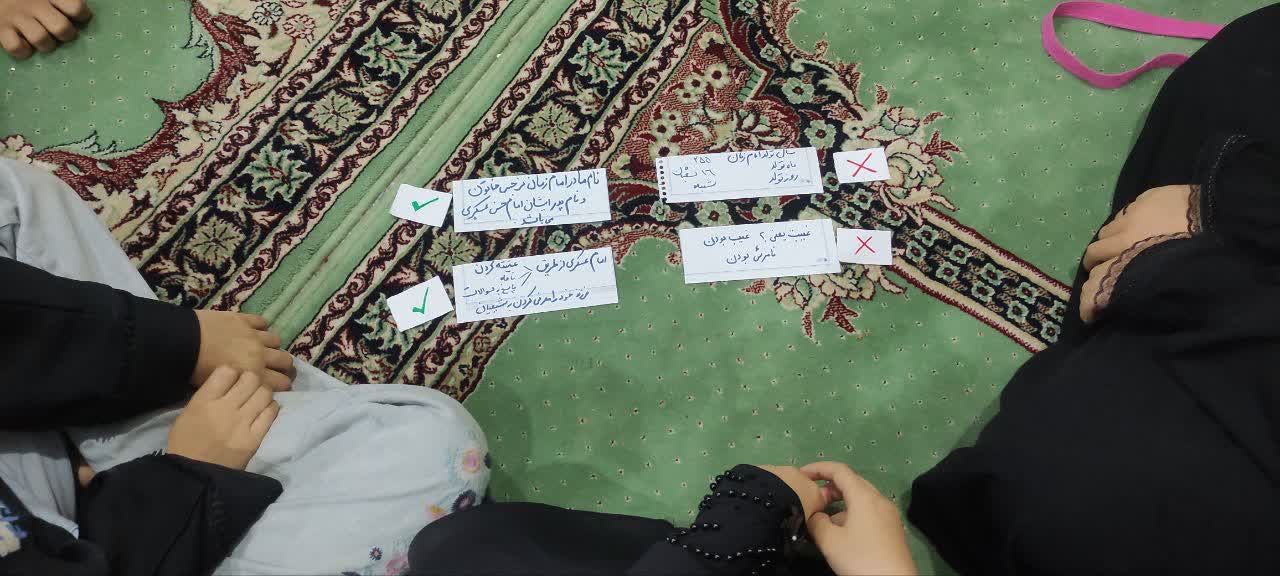 سال تولد امام زمان ۲۵۵
ماه تولد ۱۶ شعبان
روز تولد شنبه
غیبت یعنی ؟ غیب بودن
نامرئی بودن
نام مادر امام زمان نرجس خاتون
و نام پدر ایشان امام حسن عسکری
می باشد
امام عسکری از طریق عقیقه کردن
نامه
پاسخ به سوالات
فرزند خود را معرفی کردن به شیعیان